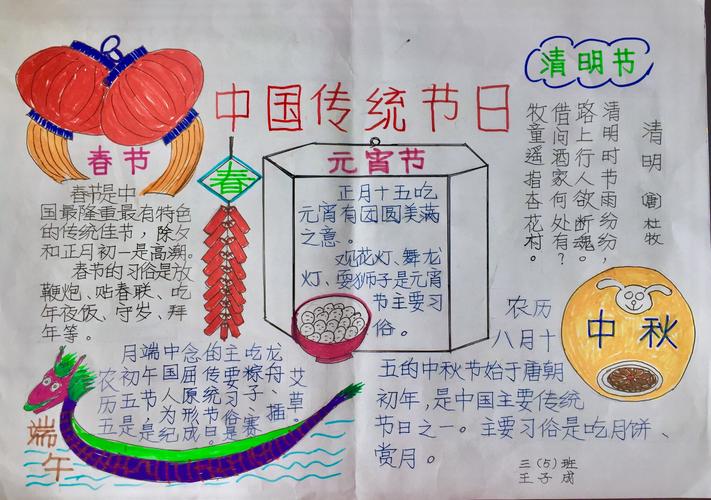 中国传统节日
春节
春节是中
国最隆重最有特色
的传统佳节，除夕
和正月初一是高潮。
春节的习俗是放
鞭炮、贴春联、吃
年夜饭、守岁、拜
年等。
春
元宵节
正月十五吃
元宵有团圆美满
之意。
观花灯、舞龙
灯、耍狮子是元宵
节主要习
俗。
清明节
清明 唐 杜牧
清明时节雨纷纷，
路上行人欲断魂。
借问酒家何处有？
牧童遥指杏花村。
端午
农历五
月初五是
端午节，是
中国人为纪
念屈原形成
的传统节日
主要习俗是
吃粽子、赛
龙舟、插
艾草。
中秋
农历
八月十
五的中秋节始于唐朝
初年，是中国主要传统
节日之一。主要习俗是吃月饼、
赏月。
三（5）班
王子成